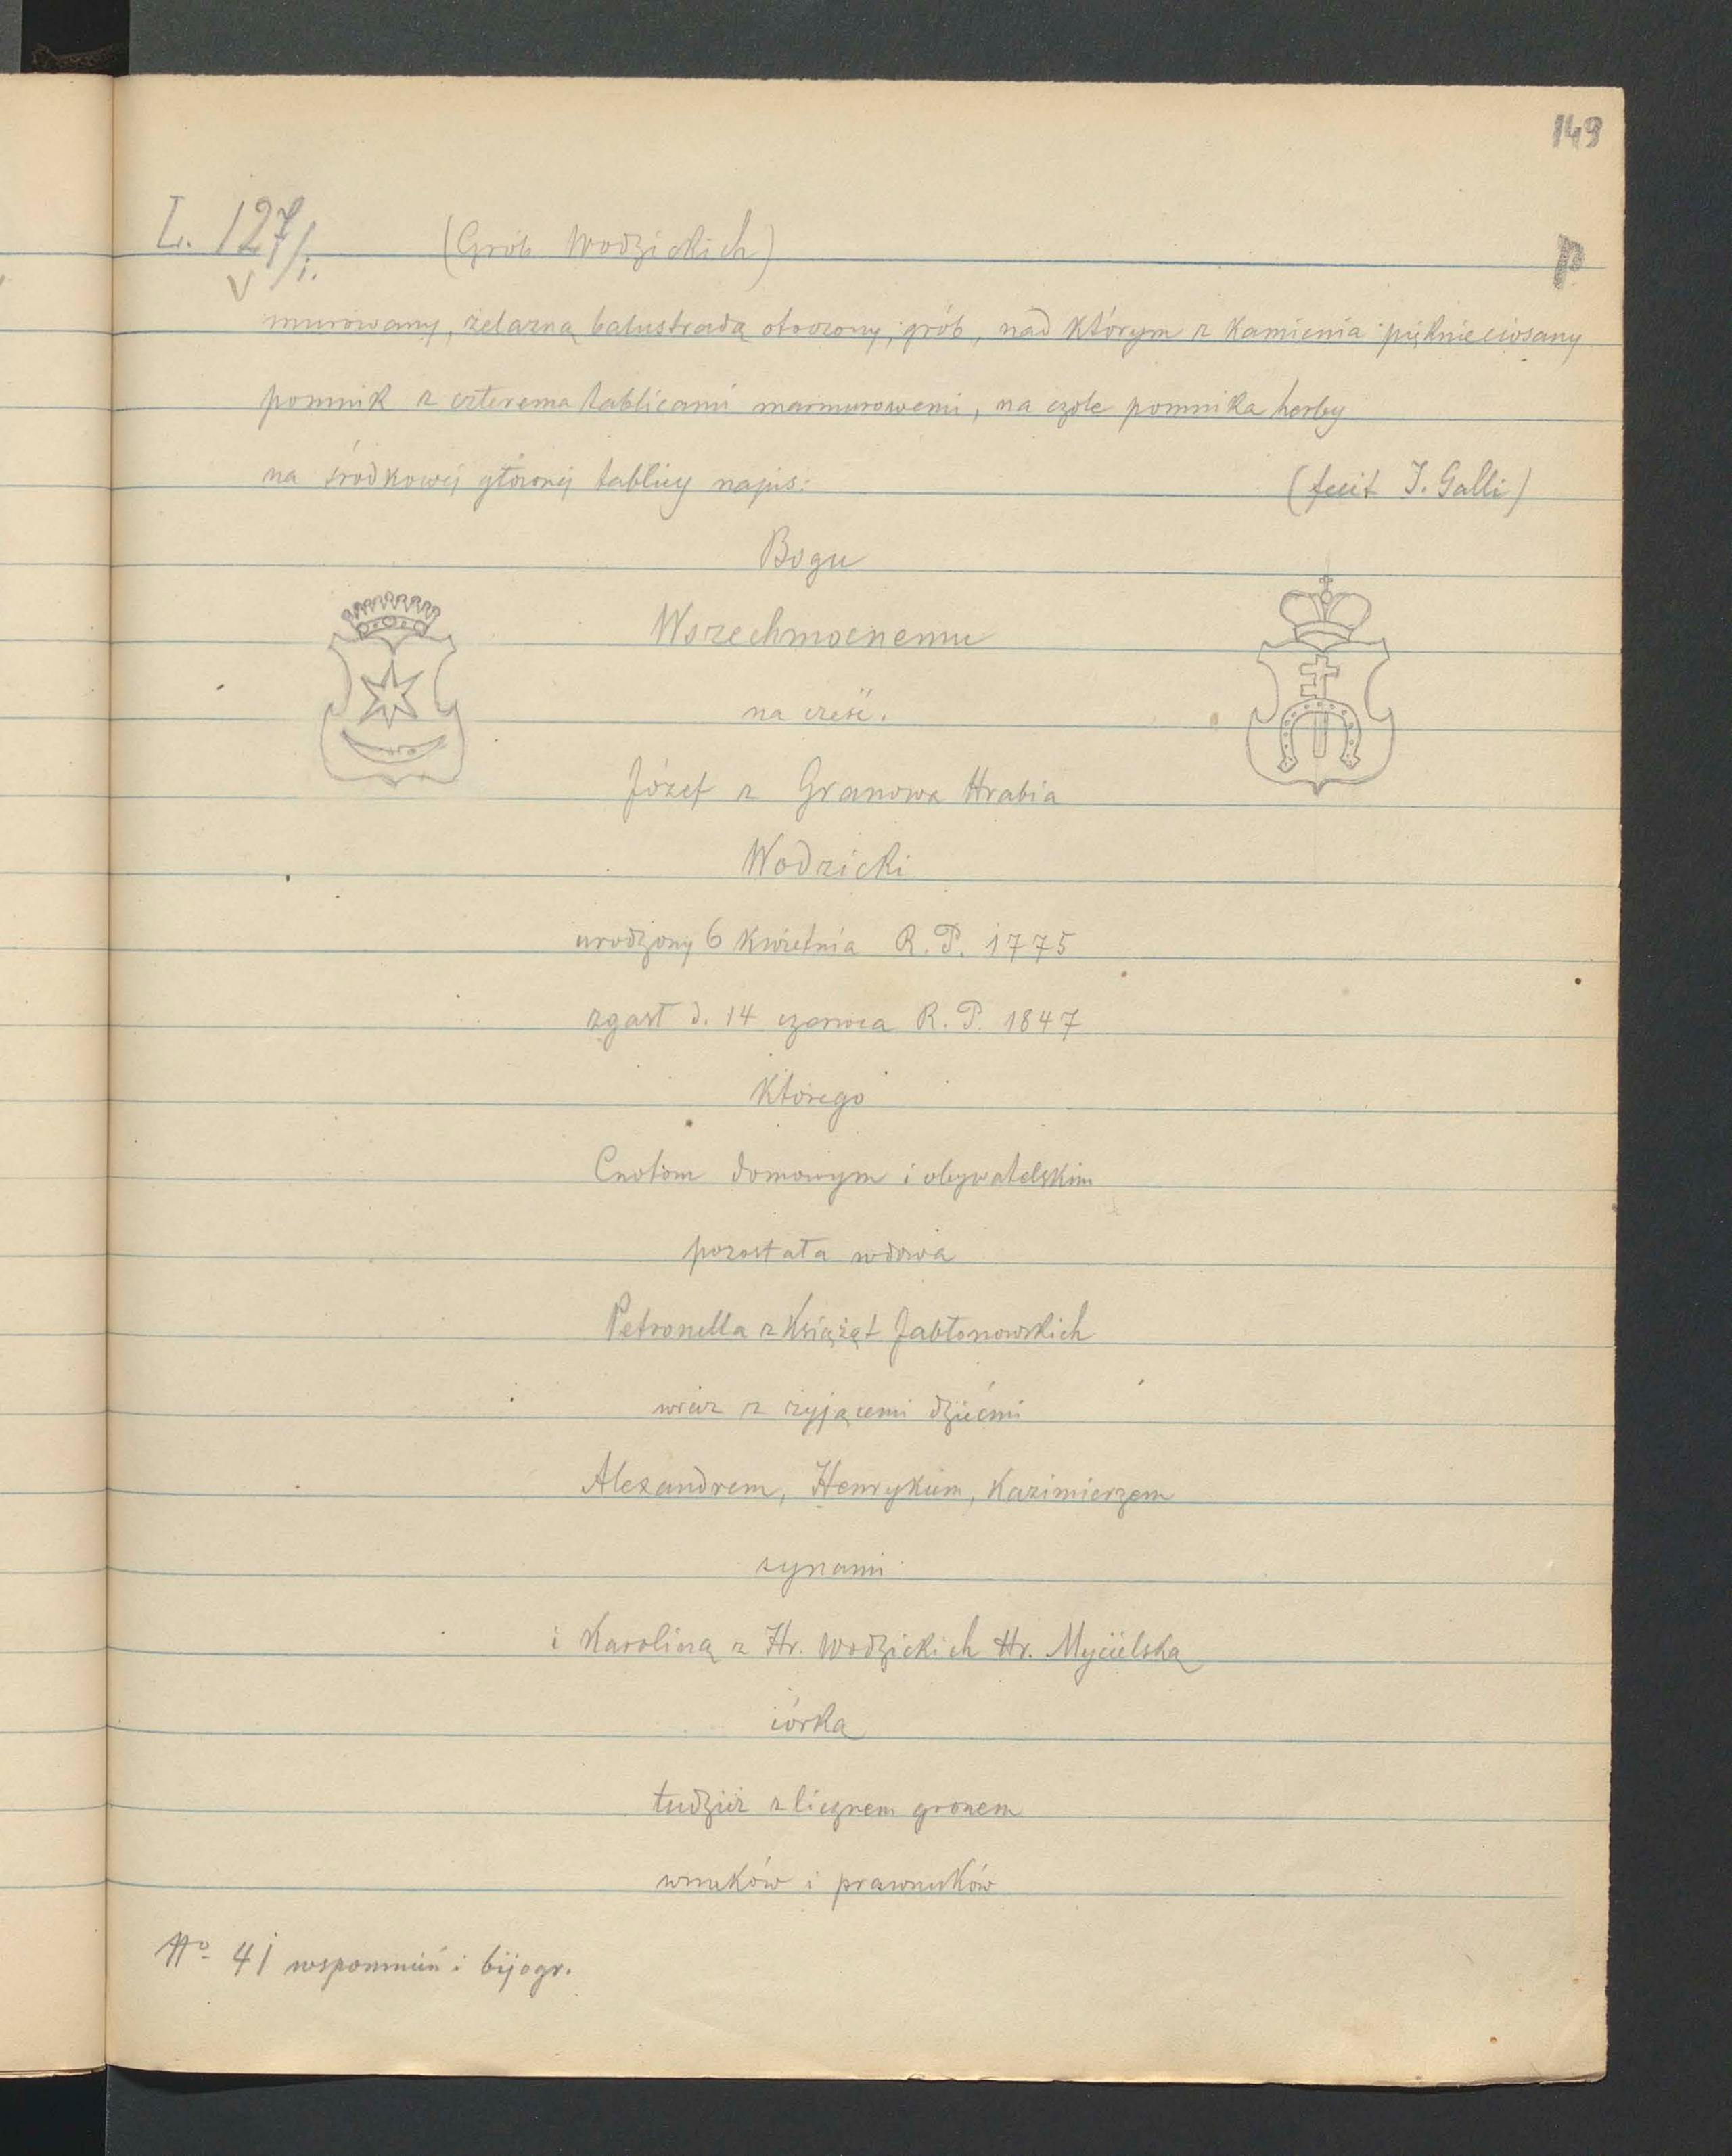 149
L. 127/i. (Grób Wodzickich)
V
P
murowany, żelazną balustradą otoczony, grób, nad którym z kamienia pięknie ciosany
pomnik z czterema tablicami marmurowemi, na czole pomnika herby
na środkowej głównej tablicy napis: (fecit J. Galli)
Bogu
Wszechmocnemu
na cześć.
Józef z Granowa Hrabia
Wodzicki
urodzony 6 Kwietnia R. P. 1775
zgasł d. 14 czerwca R. P. 1847
Którego
Cnotom domowym i obywatelskim
pozostała wdowa
Petronella z Książąt Jabłonowskich
wraz z żyjącemi dziećmi
Alexandrem, Henrykiem, Kazimierzem
synami
i Karoliną z Hr. Wodzickich Hr. Mycielską
córką
tudzież z licznem gronem
wnuków i prawnuków
No 41 wspomnień i bijogr.